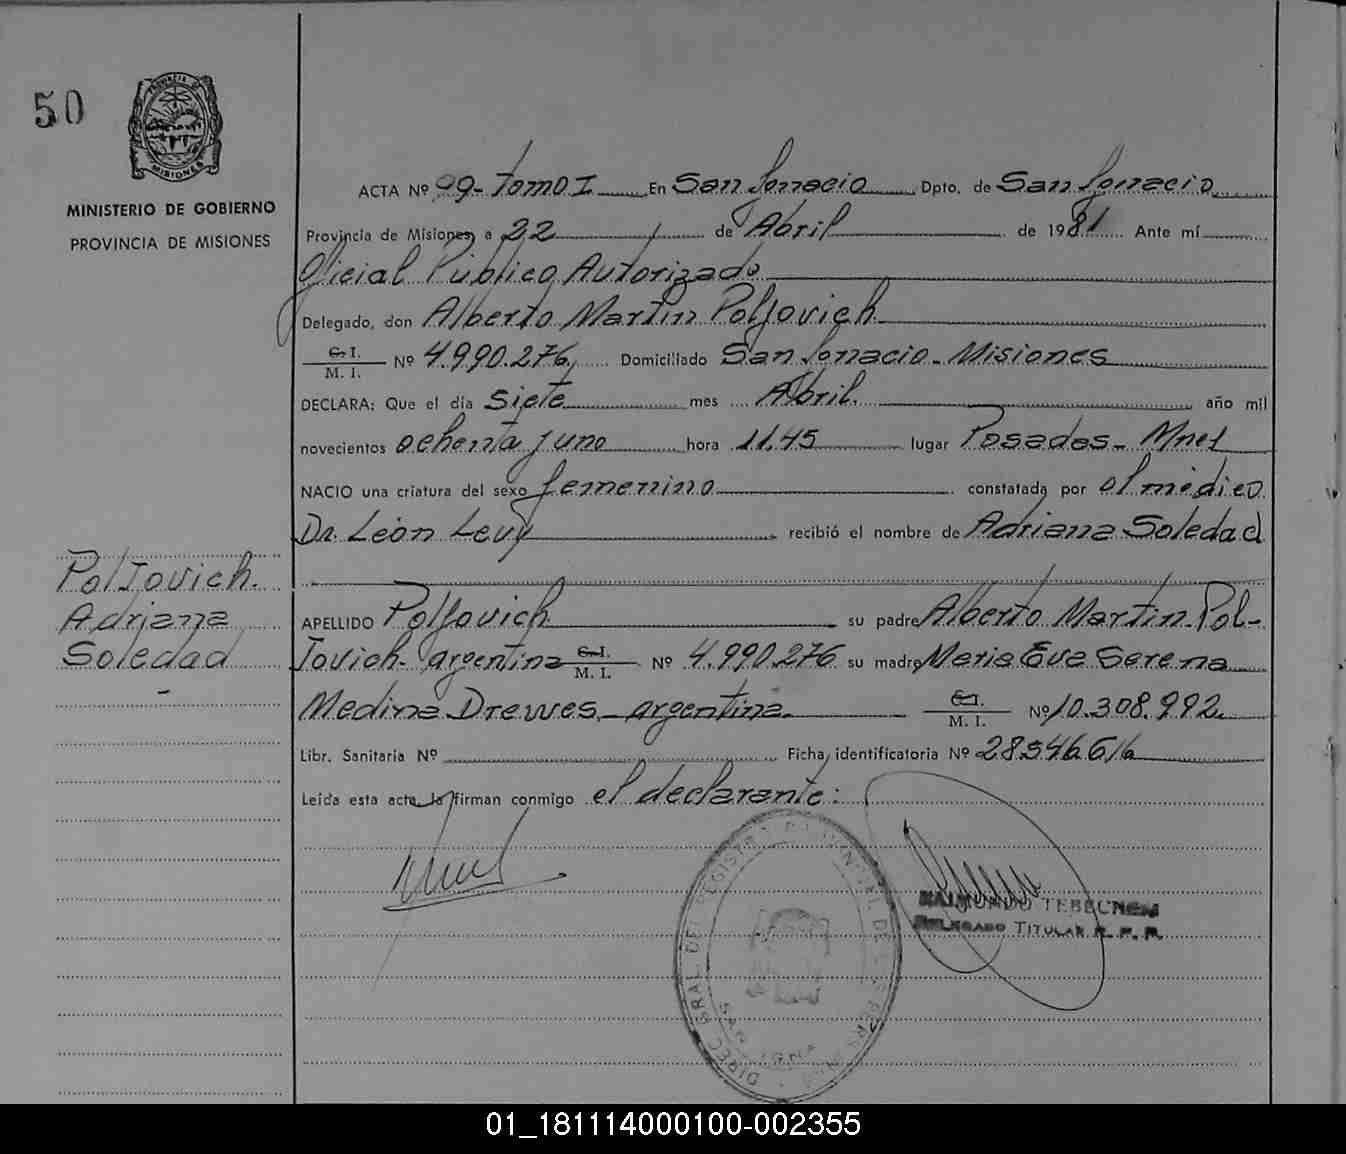 50
MINISTERIO DE GOBIERNO
PROVINCIA DE MISIONES
PROVINCIA DE
MISIONES
ACTA Nº 99- Tomo I En San Ignacio Dpto. de San Ignacio
Provincia de Misiones a 22 de Abril de 1981 Ante mí
Oficial Público Autorizado
Delegado, don Alberto Martin Poljovich
C. I. / M. I. Nº 4.990.276, Domiciliado San Ignacio - Misiones
DECLARA: Que el día Siete mes Abril. año mil
novecientos ochenta y uno hora 11,45 lugar Posadas - Mnes
NACIO una criatura del sexo femenino constatada por el médico
Dr. León Levy recibió el nombre de Adriana Soledad
Poljovich.
Adriana
Soledad
-
APELLIDO Poljovich su padre Alberto Martin Pol-
jovich - argentino C. I. / M. I. Nº 4.990.276 su madre Maria Eva Serena
Medina Drewes - argentina. C. I. / M. I. Nº 10.308.992.
Libr. Sanitaria Nº Ficha identificatoria Nº 28546616
Leída esta acta, la firman conmigo el declarante:
DIREC. GRAL. DEL REGISTRO PROVINCIAL DE LAS PERSONAS
SAN IGNACIO
RAIMUNDO TEBECHEM
DELEGADO TITULAR R. P. P.
01_181114000100-002355